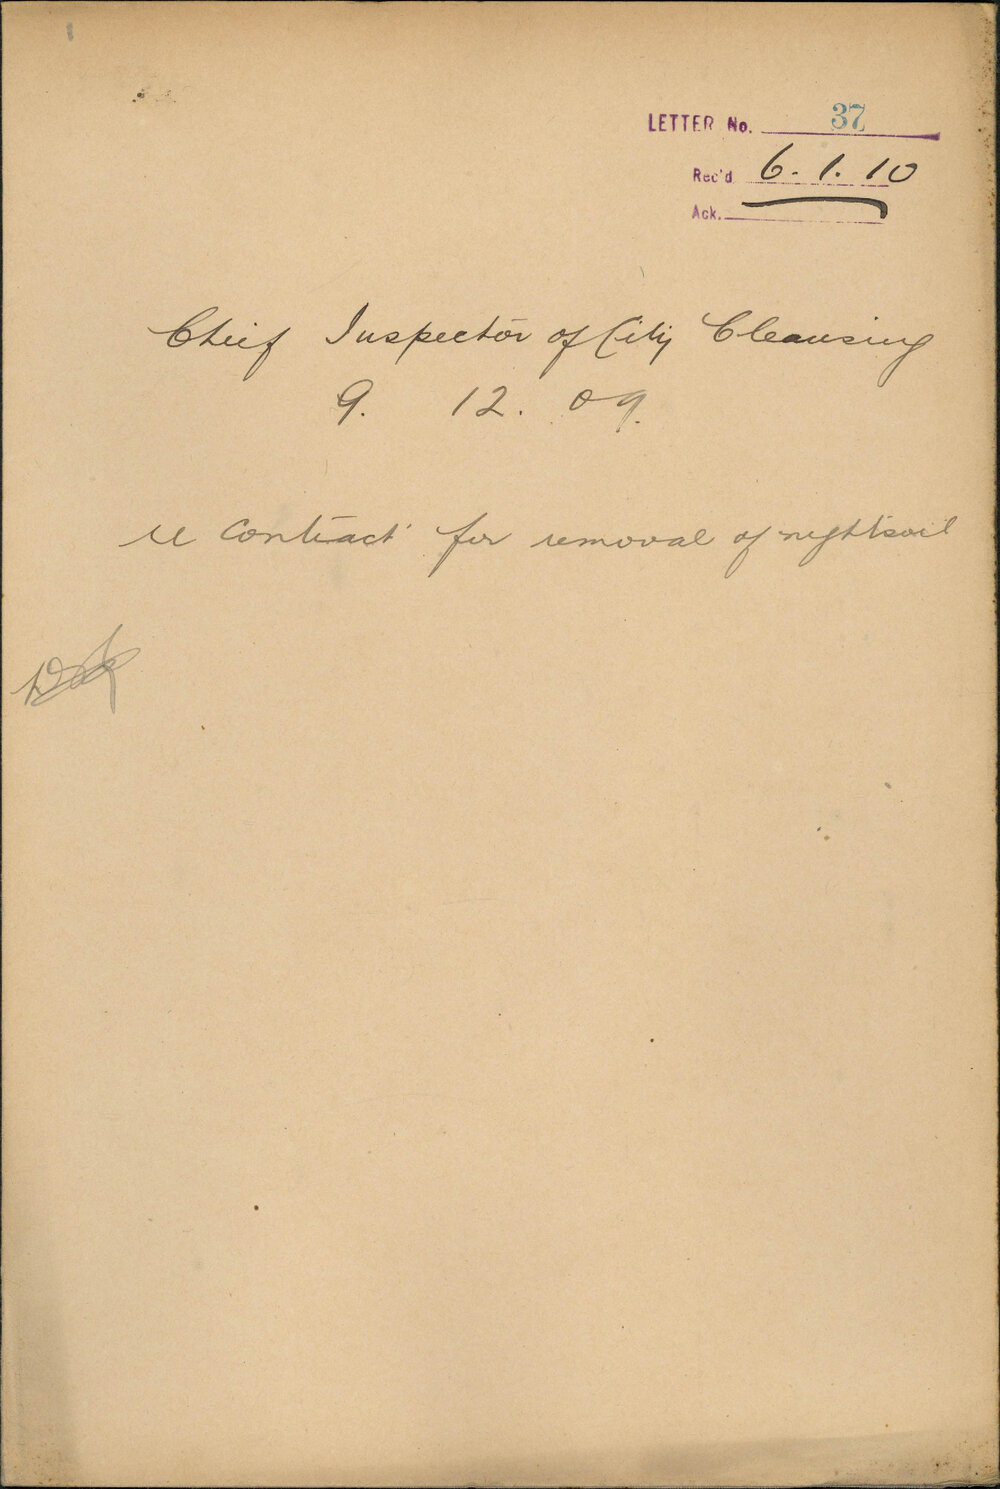 LETTER No. 37
Rec'd 6.1.10
Ack.
Chief Inspector of City Cleansing
9. 12. 09.
re contract for removal of nightsoil